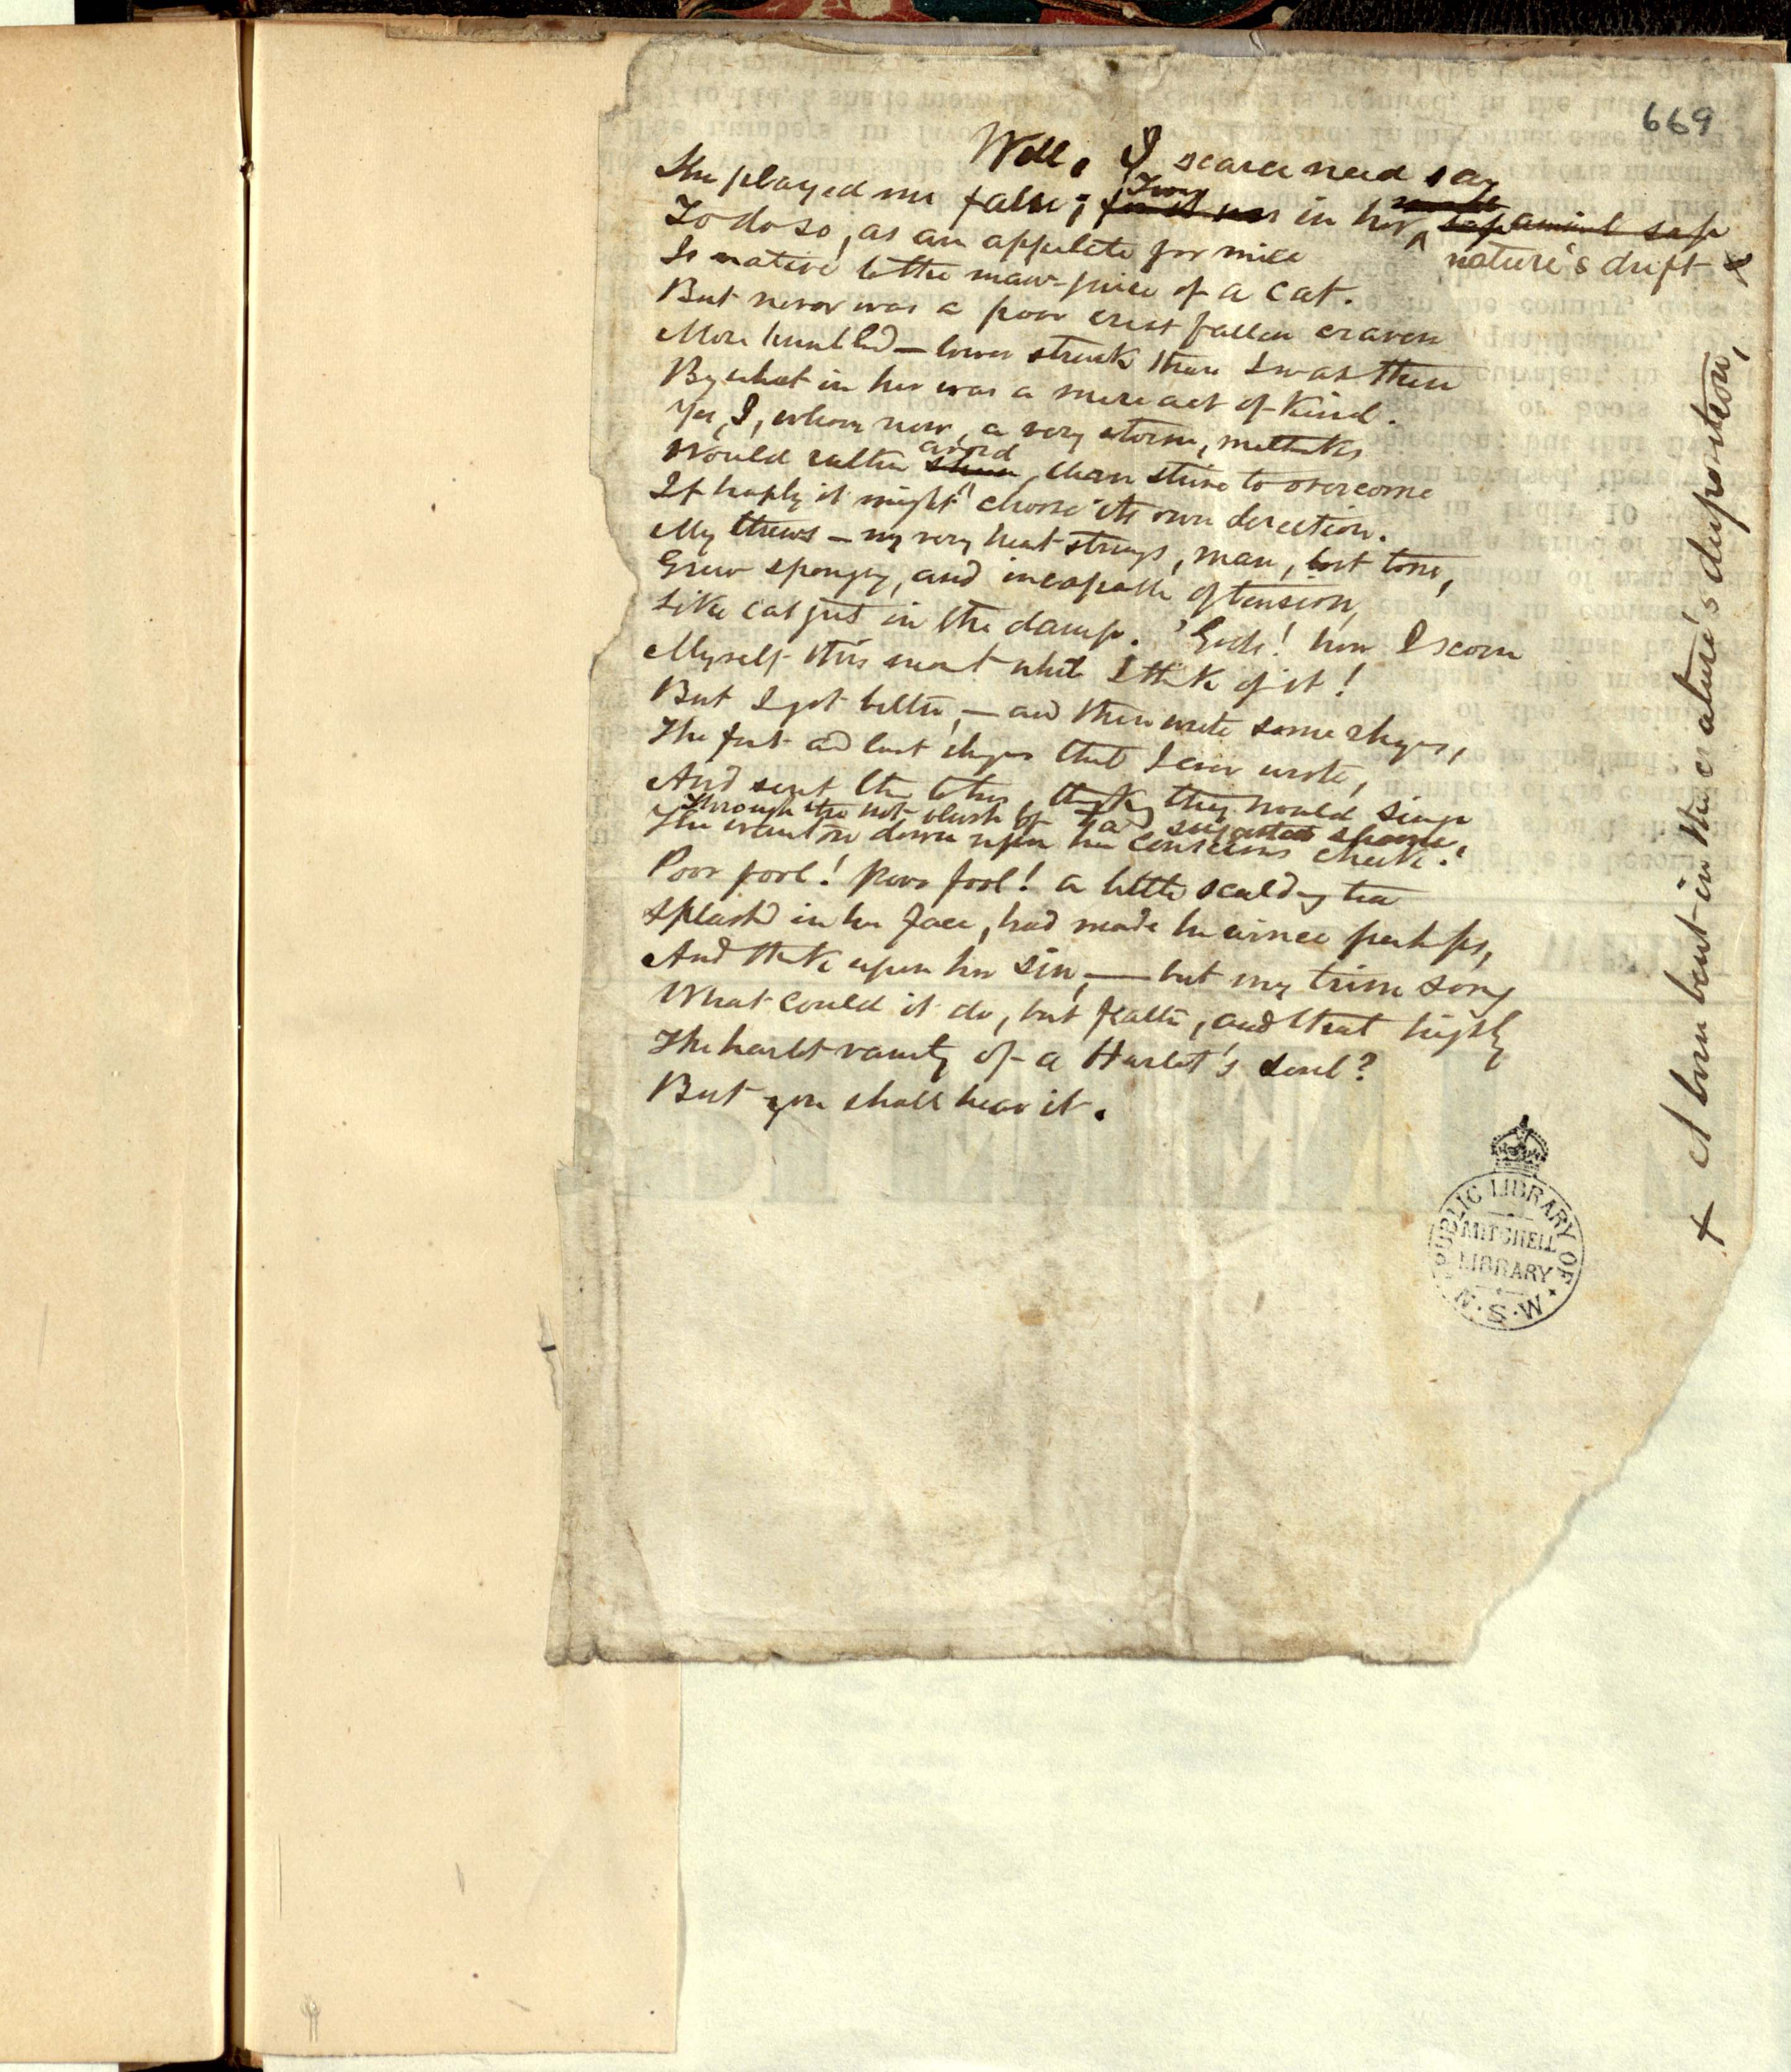 669
Well, I scarce need say
She played me false; for it was in her
'Twas
nature's drift ×
To do so, as an appetite for mice
Is native to the maw-juice of a cat.
But never was a poor crest fallen craven
More humbled — lower struck than I was then
By what in her was a mere act of kind.
Yes, I, whom now, a very storm, methinks
avoid
Would rather shun, than strive to overcome
If haply it might choose its own direction.
My thews — my very heart strings, man, lost tone,
Grew spongy, and incapable of tension,
Like catgut in the damp. 'Gods! how I scorn
Myself this moment while I think of it!
But I got better, — and then wrote some rhymes,
The first and last rhymes that I ever wrote,
And sent them to her, thinking they would singe
Through the hot blush of had suggested shame,
The wanton down upon her conscious cheek.
Poor fool! poor fool! a little scalding tea
Splash'd in her face, had made her wince perhaps,
And think upon her sin, — but my trim song
What could it do, but flatter, and that highly
The harlot vanity of a Harlot's soul?
But you shall hear it.
× A born bent in the creature's disposition,
PUBLIC LIBRARY OF N.S.W.
MITCHELL
LIBRARY